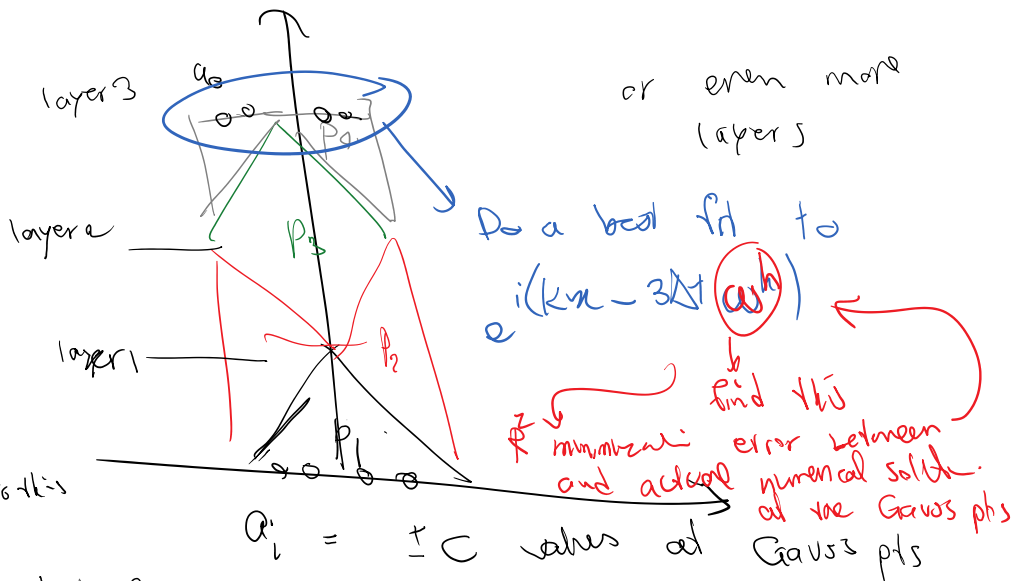 layer 3
a
or even more
layers
P4
layer 2
P3
Do a best fit to
e^i(kx - 3Δt ω^h)
layer 1
P2
find this
R^2 minimizati error between
and actual numerical solth.
at the Gauss pts
P1
a_i = ± C values at Gauss pts